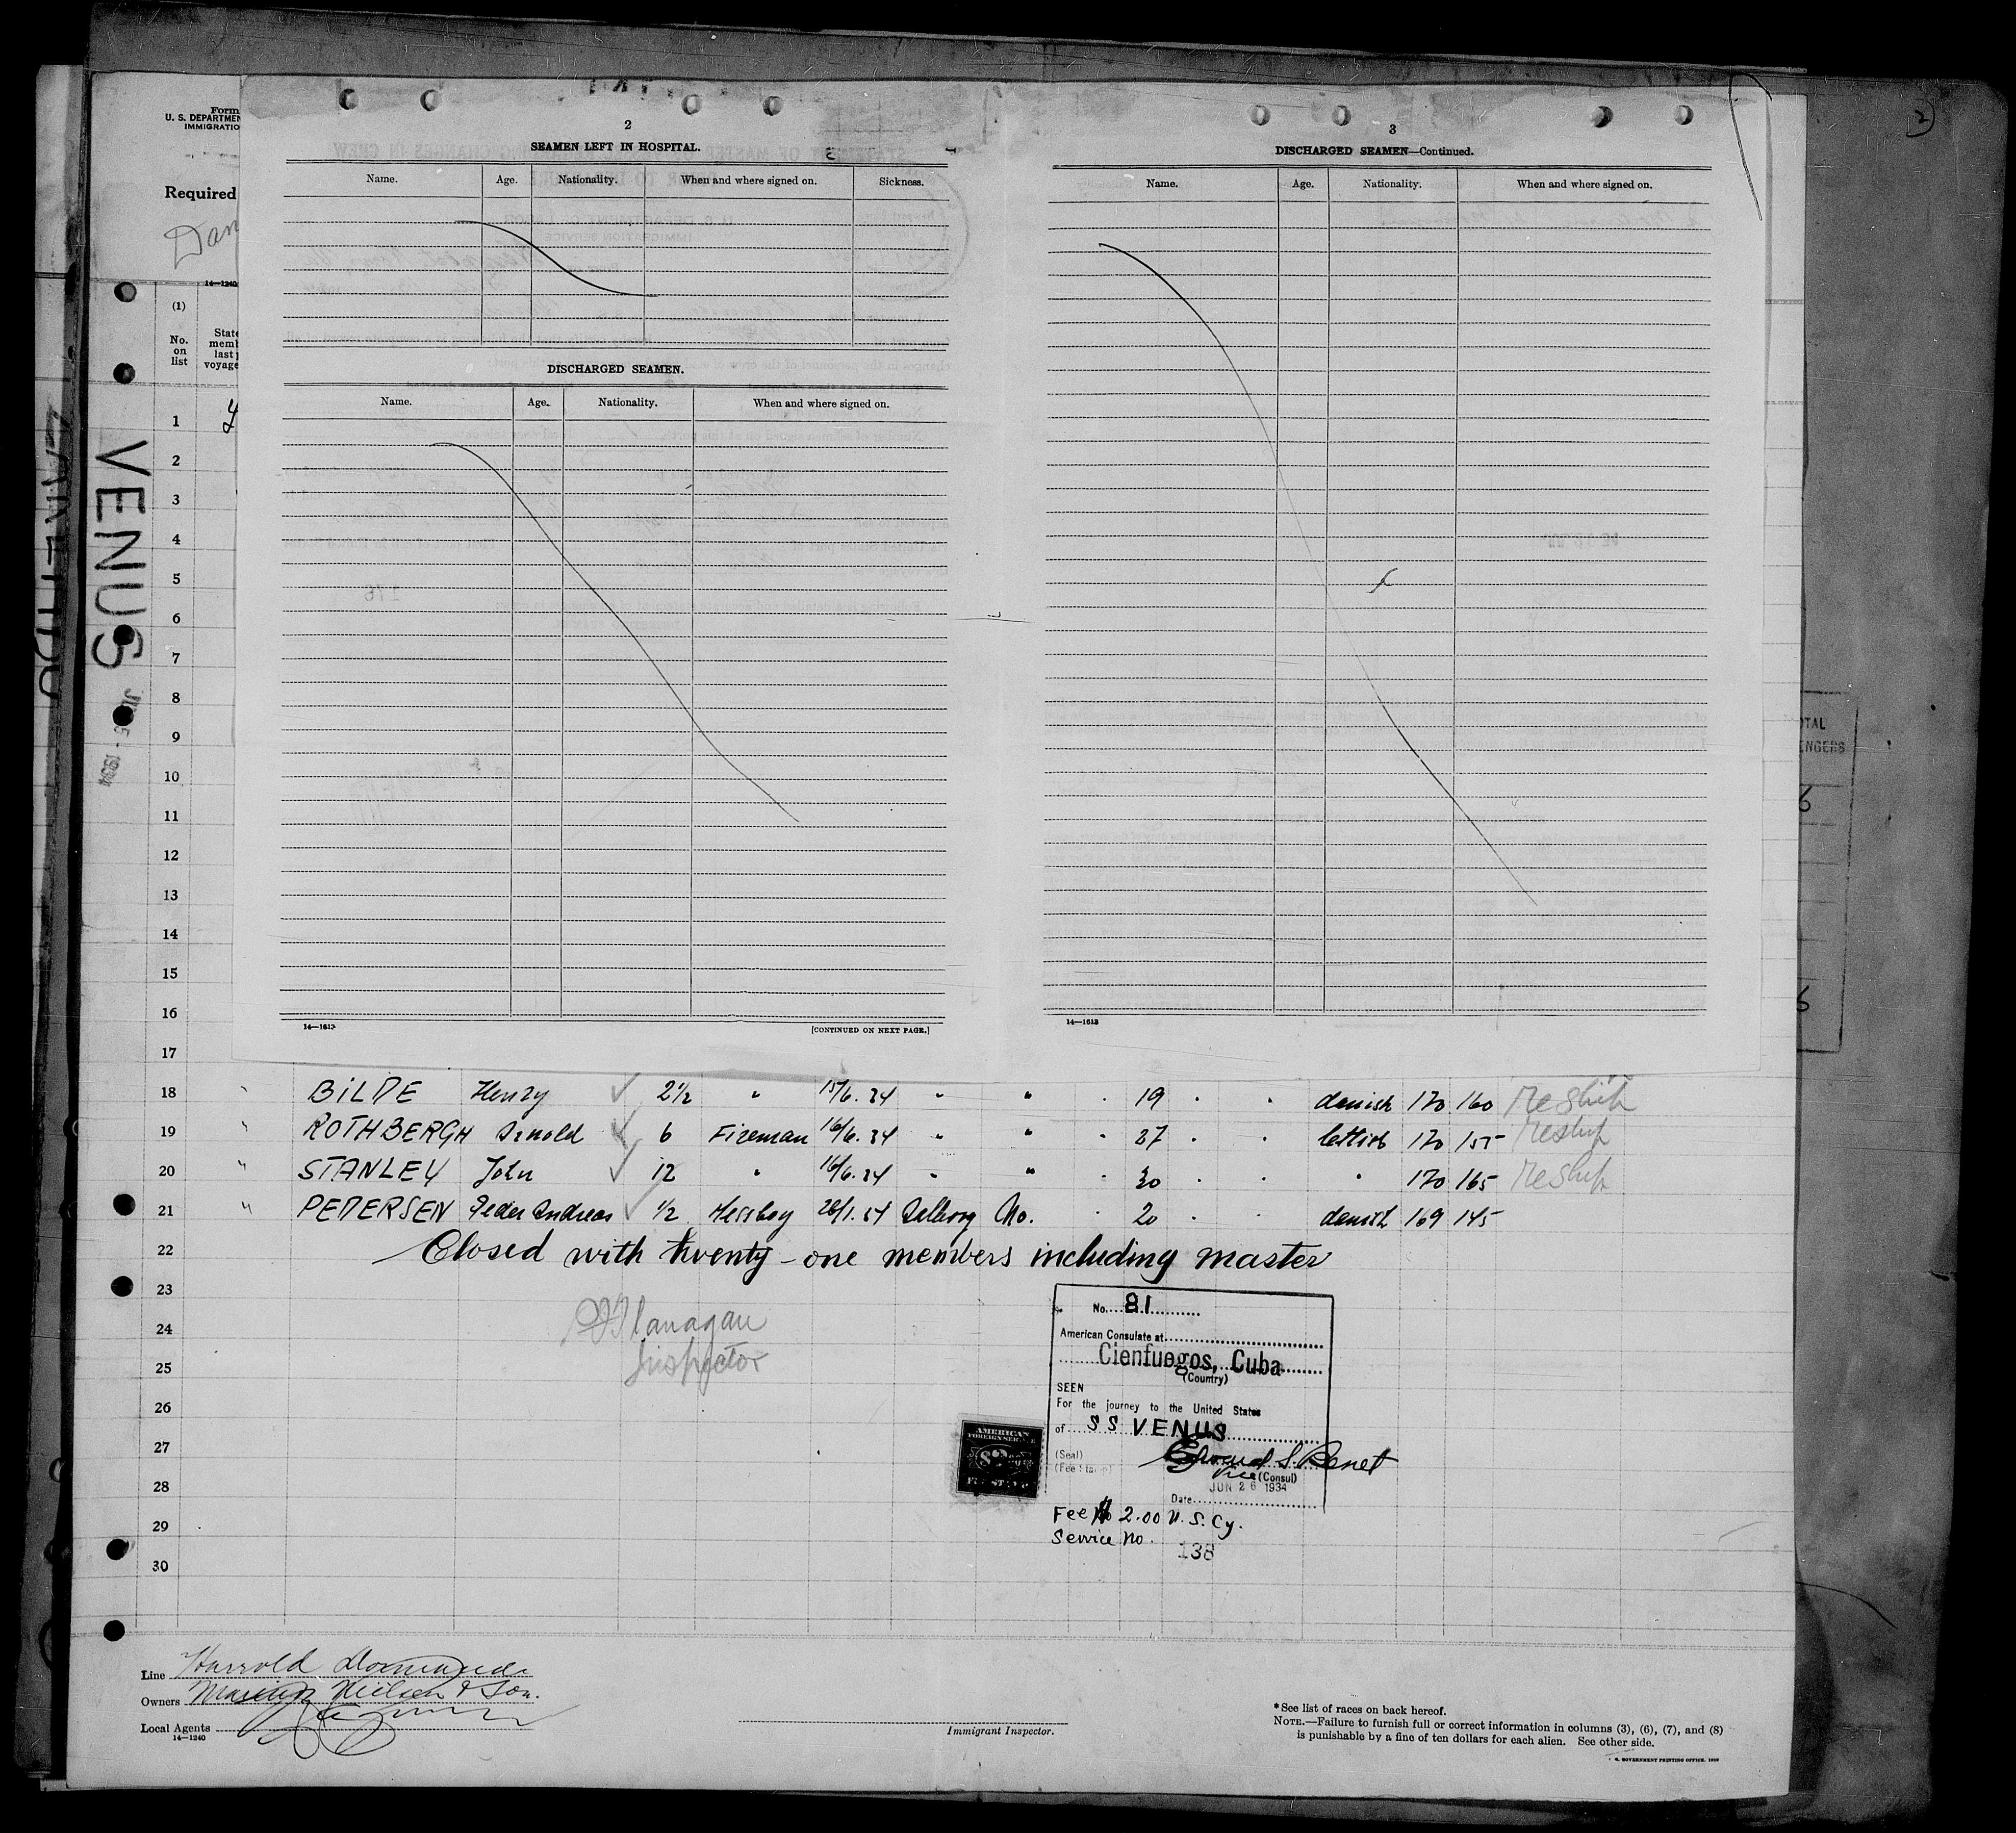 2
SEAMEN LEFT IN HOSPITAL.
Name. Age. Nationality. When and where signed on. Sickness.
DISCHARGED SEAMEN.
Name. Age. Nationality. When and where signed on.
14—1613 [CONTINUED ON NEXT PAGE.]
3
DISCHARGED SEAMEN—Continued.
Name. Age. Nationality. When and where signed on.
14—1613
2
Form
U. S. DEPARTMEN
IMMIGRATIO
Required
Dan
14—1240
(1)
No. on list
State
memb
last
voyage
VENUS
1934
1
2
3
4
5
6
7
8
9
10
11
12
13
14
15
16
17
18 " BILDE Henry ✓ 2½ " 15/6.34 " " " 19 " " danish 170 160 Reship
19 " ROTHBERGH Arnold ✓ 6 Fireman 16/6.34 " " " 37 " " lettish 170 155 Reship
20 " STANLEY John ✓ 12 " 16/6.34 " " " 30 " " " 170 165 Reship
21 " PEDERSEN Peder Andreas ✓ ½ Messboy 26/1.34 Aalborg No. " 20 " " danish 169 145
22 Closed with twenty-one members including master
23
24 Flanagan
25 Inspector
26
27
28
29
30
No. 81
American Consulate at
Cienfuegos, Cuba
(Country)
SEEN
For the journey to the United States
of SS VENUS
(Seal)
(Fee Stamp)
Vice (Consul)
JUN 26 1934
Date
AMERICAN
FOREIGN SERVICE
$2
FEE STAMP
Fee $ 2.00 U.S. Cy.
Service No. 138
Line
Owners Nielsen & Son.
Local Agents
14—1240
Immigrant Inspector.
* See list of races on back hereof.
NOTE.—Failure to furnish full or correct information in columns (3), (6), (7), and (8)
is punishable by a fine of ten dollars for each alien. See other side.
U. S. GOVERNMENT PRINTING OFFICE.
OTAL
ENGERS
6
6